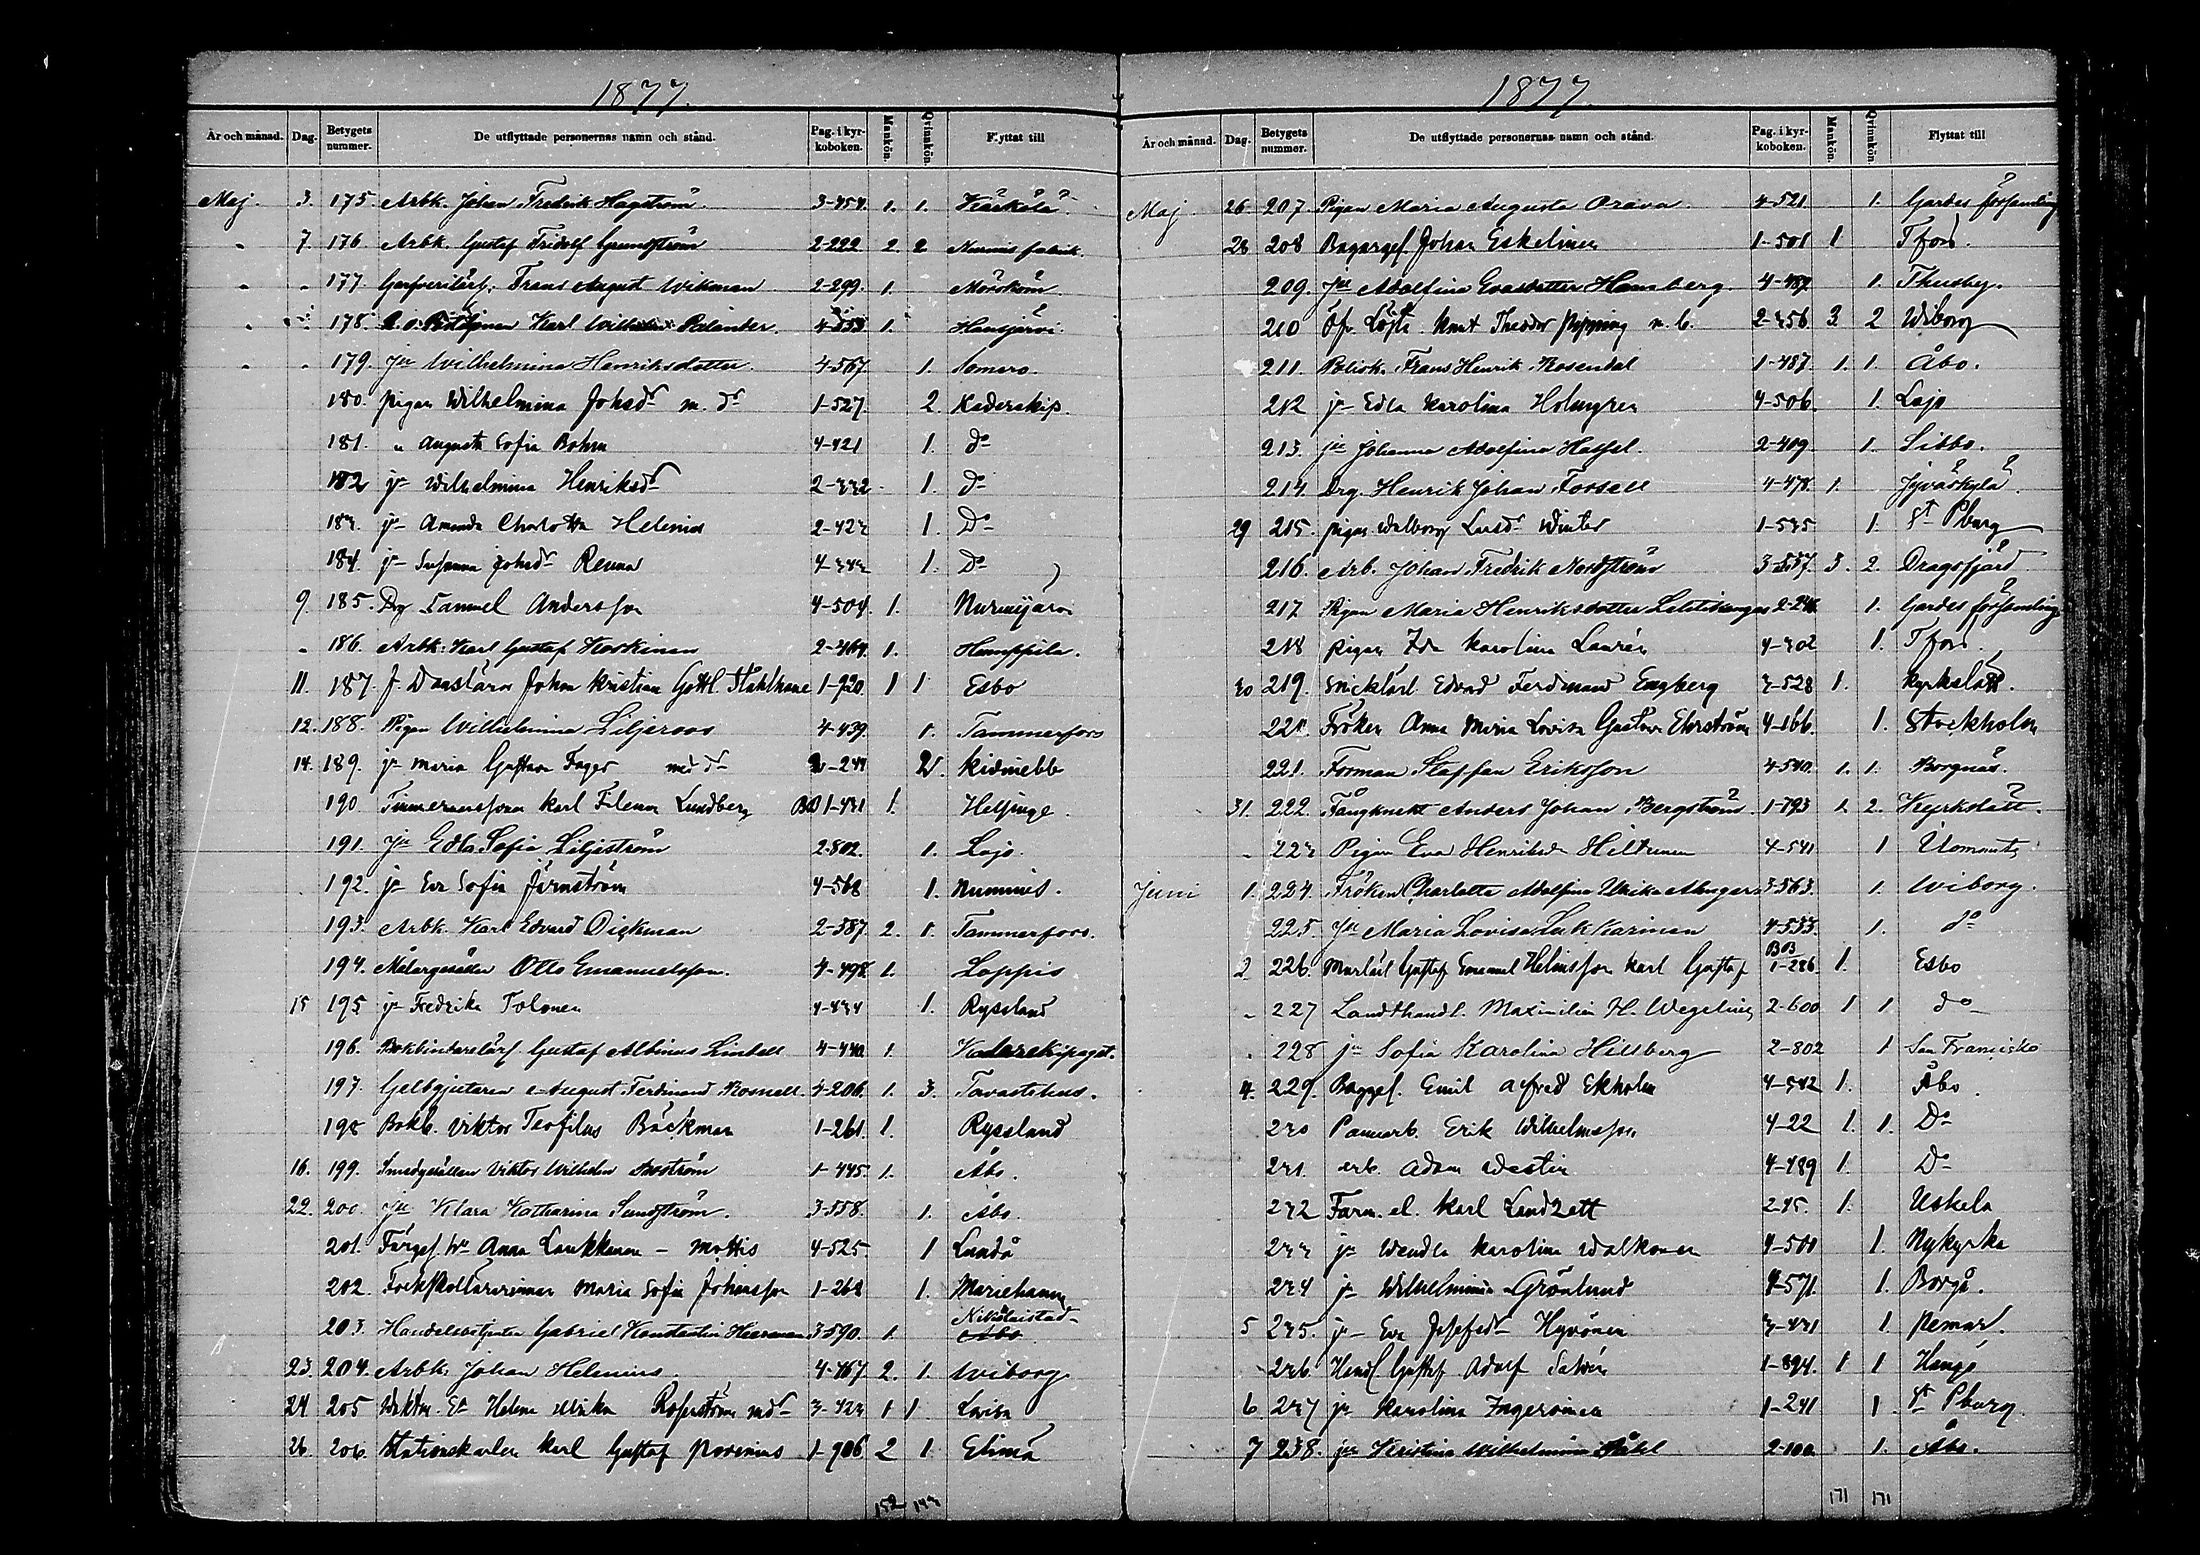 1877.
År och månad. Dag. Betygets nummer. De utflyttade personernas namn och stånd. Pag. i kyrkoboken. Mankön. Qvinnkön. Flyttat till
Maj. 3. 175. Arbk. Johan Fredrik Hagström. 3-454. 1. 1. Kärkölä.
" 7. 176. Arbk. Gustaf Fridolf Grundström 2-222 2. 2 Nurmis fabrik.
" " 177. Garfverilärl. Frans August Wikman 2-299. 1. Mörskom.
" 178. Karl Palander 4-553 1. Hausjärvi.
" " 179. jgn Wilhelmina Henriksdotter. 4-567 1. Somero.
180. pigan Wilhelmina Johsdr m. dr 1-527. 2. Kaderskip.
181. " Augusta Sofia Bohm 4-421 1. do
182 jgn Wilhelmina Henriksdr 2-332 1. do
183. jgn Amanda Charlotta Helenius 2-423 1. Do
184. jgn Susanna Johsdr Renna 4-343 1. Do
9. 185. Drg Samuel Andersson 4-504. 1. Nurmijärvi
" 186. Arbk. Karl Gustaf Koskinen 2-464. 1. Humppila.
11. 187. Johan Kristian Gottl. Ståhlhane 1-920 1 1 Esbo
12. 188. Pigan Wilhelmina Liljeroos 4-439. 1. Tammerfors
14. 189. jgn Maria Gustava Fager med dr 2-244 2. Kidnebb
190 Timmermanssonen Karl Filemon Lundberg BB 1-431 1. Helsinge.
191. jgn Edla Sofia Liljeström 2-802. 1. Lojo.
192. jgn Eva Sofia Järnström 4-568 1. Nummis.
193. Arbk. Karl Edvard Dickman 2-587 2. 1. Tammerfors.
194. Målargesällen Otto Emanuelsson. 4-498. 1. Loppis
15 195 jgn Fredrika Tolonen 4-434 1. Ryssland
196. Bokbindarelärl Gustaf Albinus Lindell 4-440. 1. Kaderskipaget.
197. Gelbgjutaren August Ferdinand Rosnell. 4-206. 1. 3. Tavastehus.
198 Bokb. Viktor Teofilus Bäckman 1-261 1. Ryssland
16. 199. Smedgesällen Viktor Wilhelm 1-445. 1. Åbo.
22. 200. jgn Klara Katharina Sundström. 3-558. 1. Åbo.
201. Färgef. Anna Laukkanen - Mattis 4-525 1 Lundo
202. Folkskollärarinnan Maria Sofia Johansson 1-268 1. Mariehamn
203. Handelsbetjenten Gabriel Konstantin 3-590. 1. Nikolaistad
23. 204. Arbk. Johan Helenius. 4-467. 2. 1. Wiborg
24 205 Helena Ulrika Roserström med 3-423 1 1 Lovisa
26. 206. Stationskarlen Karl Gustaf Rovenius 1-906 2 1. Elimä
152 143
1877.
År och månad. Dag. Betygets nummer. De utflyttade personernas namn och stånd. Pag. i kyrkoboken. Mankön. Qvinnkön. Flyttat till
Maj 26 207. Pigan Maria Augusta Orava. 4-521 1. Gardes församling
28 208 Bagargef. Johan Eskelinen 1-501 1 Tfors.
209. jgn Adolfina Evasdotter Hansberg. 4-487. 1. Thusby.
210 Öf. Löjtn. Knut Theodor Pipping m. b. 2-356 3 2 Wiborg
211. Polisk. Frans Henrik Rosendal 1-487. 1. 1. Åbo.
212 jgn Edla Karolina Holmgren 4-506. 1. Lojo
213. jgn Johanna Adolfina Hassel. 2-409. 1. Sibbo.
214. Drg. Henrik Johan Forsell 4-478. 1. Jyväskylä.
29 215. pigan Walborg Winter 1-535 1. St Pburg
216. Arb. Johan Fredrik Nordström 3-537. 3. 2. Dragsfjärd
217 Pigan Maria Henriksdotter 1. Gardes församling
218 pigan Ida Karolina Laurén 4-302 1. Tfors.
30 219. Edvard Ferdinand Engberg 3-528 1. Kyrkslätt.
220. Fröken Anna Maria Lovisa Gustava Ehrström 4-166. 1. Stockholm
221. Forman Staffan Eriksson 4-540. 1. 1. Borgnäs.
31. 222. Fångknekt Anders Johan Bergström. 1-793 1. 2. Kyrkslätt.
" 223 Pigan Eva Henriksdr Hiltunen 4-541 1 Ilomants
Juni 1. 224. Fröken Charlotta Adolfina Ulrika 3-563. 1. Wiborg.
225. jgn Maria Lovisa Lukkarinen 4-533. 1. do
2. 226. Murlärl Gustaf Emanuel Helinsson Karl Gustaf BB 1-286 1. Esbo
" 227 Landthandl. Maximilian H. Wegelius 2-600 1 1 do
" 228 jgn Sofia Karolina Hillberg 2-802 1 San Francisko
4. 229. Baggef. Emil Alfred Ekholm 4-542 1. Åbo.
230 Pannarb. Erik Wilhelmsson 4-22 1. 1. Do
231. Arb. Adam Westin 4-489 1. Do
232 Farm. el. Karl Landzett 2-95. 1. Uskela
233 jgn Wendla Karolina Walkonen 4-500 1. Nykyrka
234 jgn Wilhelmina Grönlund 4-571. 1. Borgå.
5 235. jgn Eva Josefsdr Hyvönen 3-431 1. Pemar.
236. Handl Gustaf Adolf Salvén 1-894. 1 1 Hangö
6. 237 jgn Karolina Ingeroinen 1-241 1. St Pburg.
7 238. jgn Kristina Wilhelmina Ståhl 2-100. 1. Åbo.
171 171